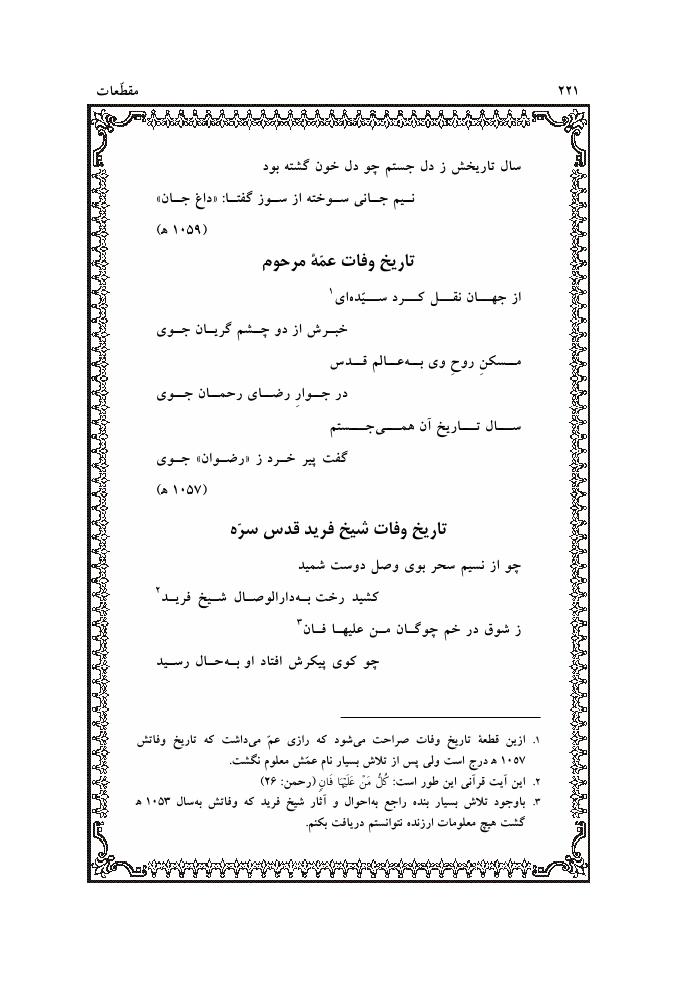 ۲۲۱ مقطّعات
سال تاریخش ز دل جستم چو دل خون گشته بود
نیم جانی سوخته از سوز گفتا: «داغ جان»
(۱۰۵۹ ه)
تاریخ وفات عمّهٔ مرحوم
از جهان نقل کرد سیّده‌ای۱
خبرش از دو چشم گریان جوی
مسکنِ روحِ وی به‌عالم قدس
در جوارِ رضای رحمان جوی
سال تاریخ آن همی‌جستم
گفت پیر خرد ز «رضوان» جوی
(۱۰۵۷ ه)
تاریخ وفات شیخ فرید قدس سرّه
چو از نسیم سحر بوی وصل دوست شمید
کشید رخت به‌دارالوصال شیخ فرید۲
ز شوق در خم چوگان من علیها فان۳
چو کوی پیکرش افتاد او به‌حال رسید
۱. ازین قطعهٔ تاریخ وفات صراحت می‌شود که رازی عمّ می‌داشت که تاریخ وفاتش
۱۰۵۷ ه درج است ولی پس از تلاش بسیار نام عمّش معلوم نگشت.
۲. این آیت قرآنی این طور است: كُلُّ مَنْ عَلَيْهَا فَانٍ (رحمن: ۲۶)
۳. باوجود تلاش بسیار بنده راجع به‌احوال و آثار شیخ فرید که وفاتش به‌سال ۱۰۵۳ ه
گشت هیچ معلومات ارزنده نتوانستم دریافت بکنم.